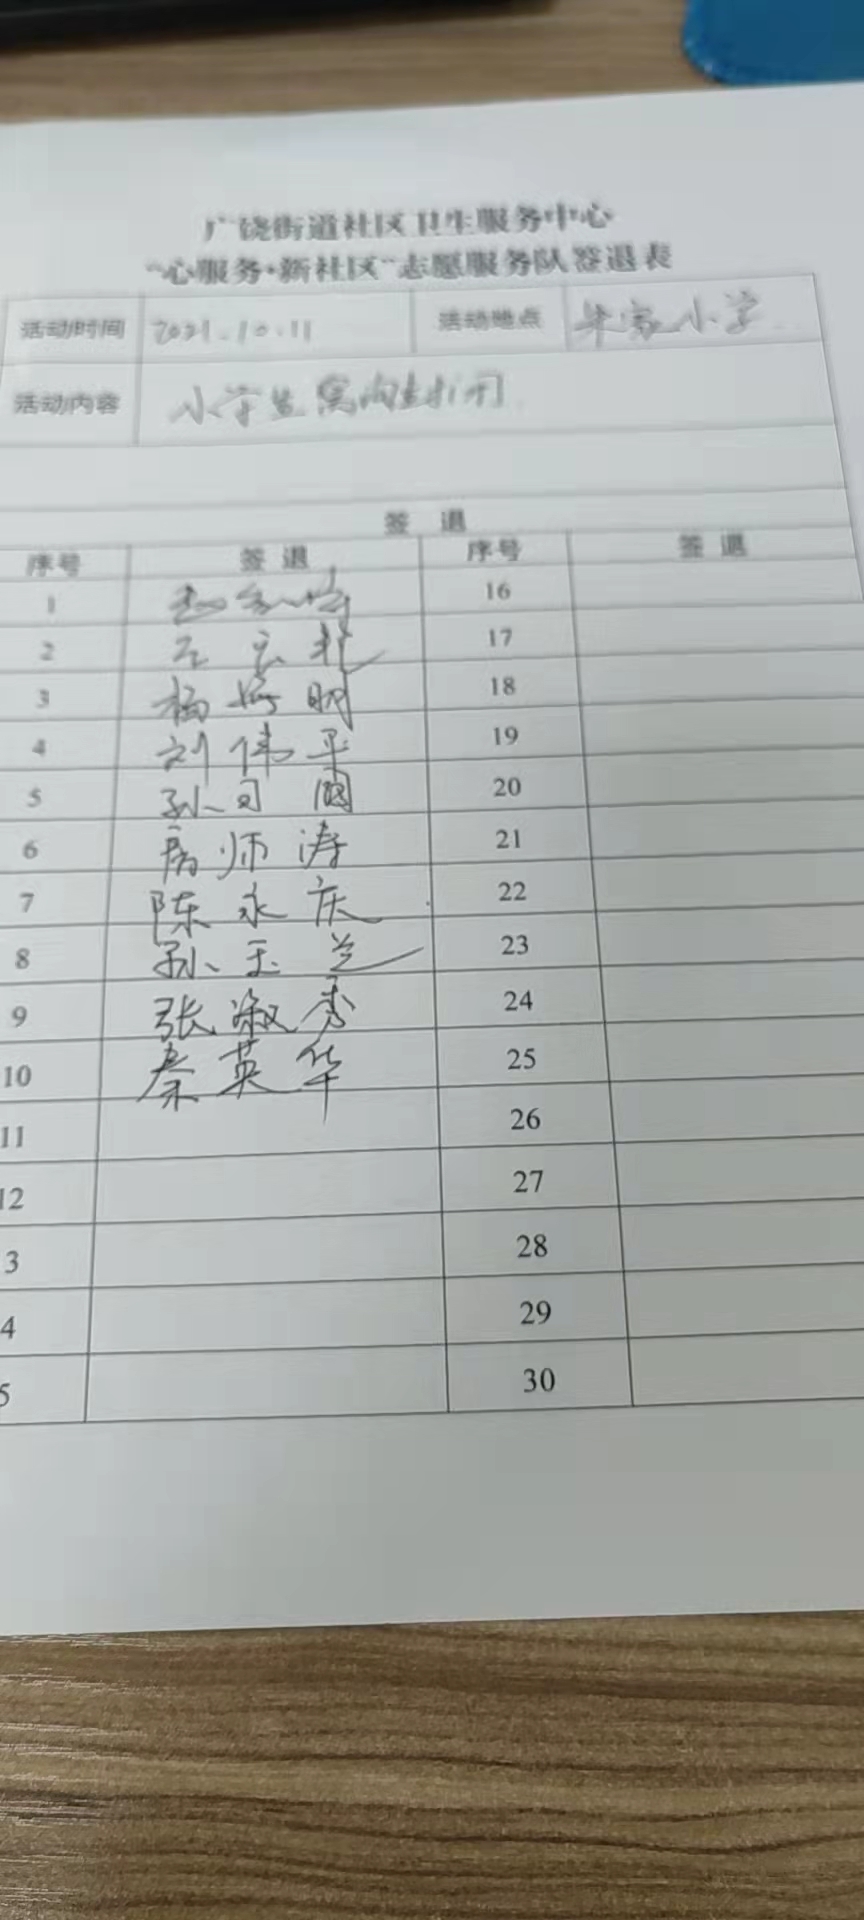 广饶街道社区卫生服务中心
“心服务·新社区”志愿服务队签退表
活动时间 2021.10.11 活动地点 小学
活动内容 小学生窝沟封闭
签 退
序号 签 退 序号 签 退
1 16
2 17
3 杨 明 18
4 刘伟平 19
5 孙 国 20
6 师涛 21
7 陈永庆 22
8 孙玉兰 23
9 张淑秀 24
10 秦英华 25
11 26
12 27
3 28
4 29
5 30